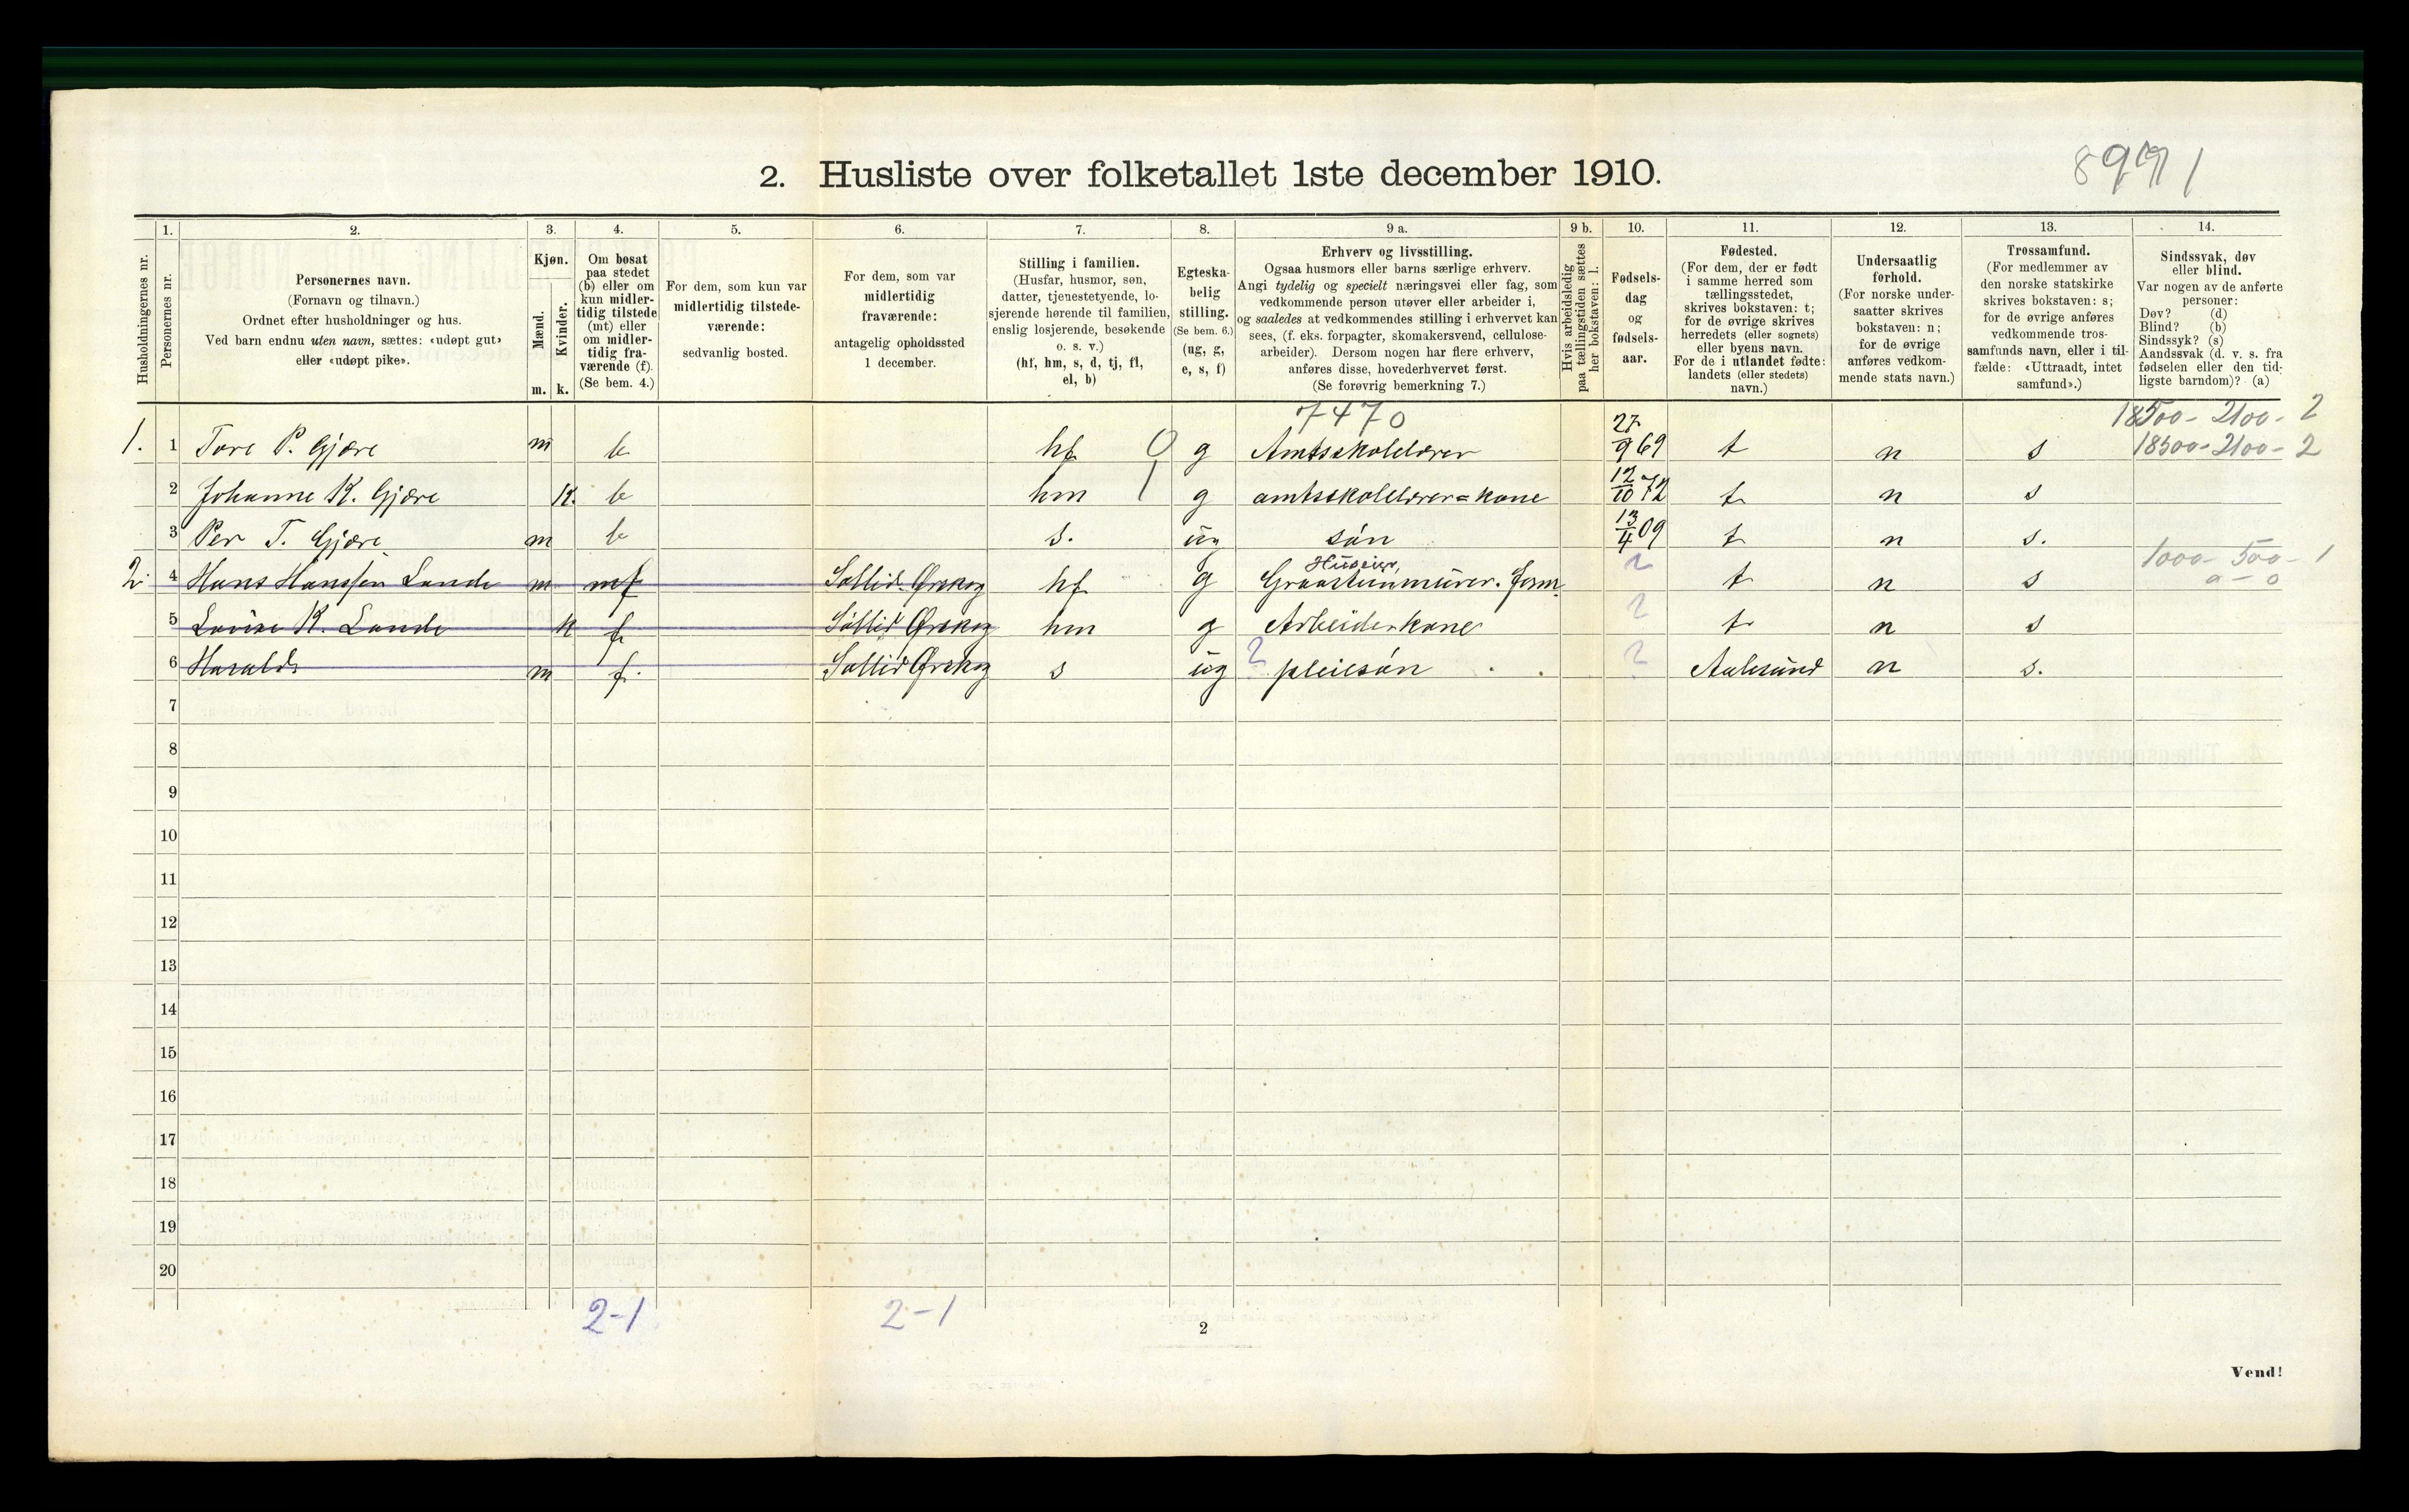 2. Husliste over folketallet 1ste december 1910.
Husholdningernes nr.
1.
Personernes nr.
2.
Personernes navn.
(Fornavn og tilnavn.)
Ordnet efter husholdninger og hus.
Ved barn endnu uten navn, sættes: «udøpt gut»
eller «udøpt pike».
3.
Kjøn.
Mænd.
Kvinder.
m. k.
4.
Om bosat
paa stedet
(b) eller om
kun midler-
tidig tilstede
(mt) eller
om midler-
tidig fra-
værende (f).
(Se bem. 4.)
5.
For dem, som kun var
midlertidig tilstede-
værende:
sedvanlig bosted.
6.
For dem, som var
midlertidig
fraværende:
antagelig opholdssted
1 december.
7.
Stilling i familien.
(Husfar, husmor, søn,
datter, tjenestetyende, lo-
sjerende hørende til familien,
enslig losjerende, besøkende
o. s. v.)
(hf, hm, s, d, tj, fl,
el, b)
8.
Egteska-
belig
stilling.
(Se bem. 6.)
(ug, g,
e, s, f)
9 a.
Erhverv og livsstilling.
Ogsaa husmors eller barns særlige erhverv.
Angi tydelig og specielt næringsvei eller fag, som
vedkommende person utøver eller arbeider i,
og saaledes at vedkommendes stilling i erhvervet kan
sees, (f. eks. forpagter, skomakersvend, cellulose-
arbeider). Dersom nogen har flere erhverv,
anføres disse, hovederhvervet først.
(Se forøvrig bemerkning 7.)
9 b.
Hvis arbeidsledig
paa tællingstiden sættes
her bokstaven: l.
10.
Fødsels-
dag
og
fødsels-
aar.
11.
Fødested.
(For dem, der er født
i samme herred som
tællingsstedet,
skrives bokstaven: t;
for de øvrige skrives
herredets (eller sognets)
eller byens navn.
For de i utlandet fødte:
landets (eller stedets)
navn.)
12.
Undersaatlig
forhold.
(For norske under-
saatter skrives
bokstaven: n;
for de øvrige
anføres vedkom-
mende stats navn.)
13.
Trossamfund.
(For medlemmer av
den norske statskirke
skrives bokstaven: s;
for de øvrige anføres
vedkommende tros-
samfunds navn, eller i til-
fælde: «Uttraadt, intet
samfund».)
14.
Sindssvak, døv
eller blind.
Var nogen av de anførte
personer:
Døv? (d)
Blind? (b)
Sindssyk? (s)
Aandssvak (d. v. s. fra
fødselen eller den tid-
ligste barndom)? (a)
7470 18500- 2100- 2
1. 1 Tore P. Gjære m b hf 0 g Amtsskolelærer 27/9 69 t n s 18500-2100-2
2 Johanne K. Gjære K. b hm 1 g amtsskolelærer=kone 12/10 72 t n s
3 Per T. Gjære m b s. ug søn 13/4 09 t n s.
Huseier, 1000- 500- 1
2. 4 Hans Hanssen Lande m mf Sollid Ørskog hf g Graasteinmurer. 2 t n s 0-0
5 Louise K. Lande k f Sollid Ørskog hm g Arbeiderkone 2 t n s
6 Harald m f. Sollid Ørskog s ug 2 pleiesøn 2 Aalesund n s.
7
8
9
10
11
12
13
14
15
16
17
18
19
20
2-1 2-1
2
Vend!